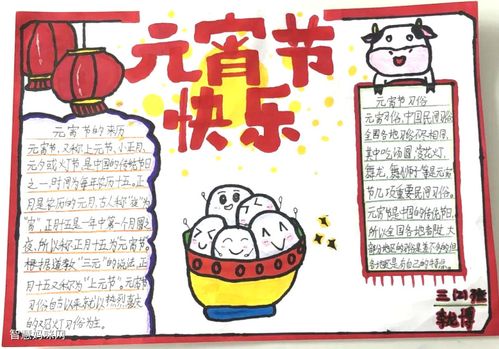 元宵节
快乐
元宵节的来历
元宵节，又称上元节，小正月、
元夕或灯节，是中国的传统节日
之一，时间为每年农历十五。正
月是农历的元月，古人称"夜"为
"宵"，正月十五是一年中第一个月圆之
夜，所以称正月十五为元宵节。
根据道教"三元"的说法，正
月十五又称为"上元节"。元宵节
习俗自古以来就以热烈喜庆
的观灯习俗为主。
元宵节习俗
元宵习俗，中国民间习俗
全国各地习俗不尽相同，
其中吃汤圆、赏花灯、
舞龙、舞狮子等是元宵
节几项重要民间习俗。
元宵节是中国的传统节日，
所以全国各地者陆大
部分地区的习俗是差不多的，但
各地还是有自己的特点。
三(2)班
智慧妈咪网